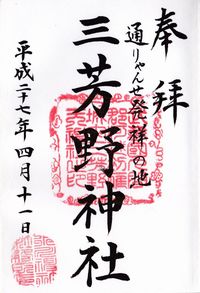 奉拝
通りゃんせ発祥の地
三芳野神社
平成二十七年四月十一日